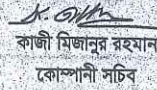 কাজী মিজানুর রহমান
কোম্পানী সচিব